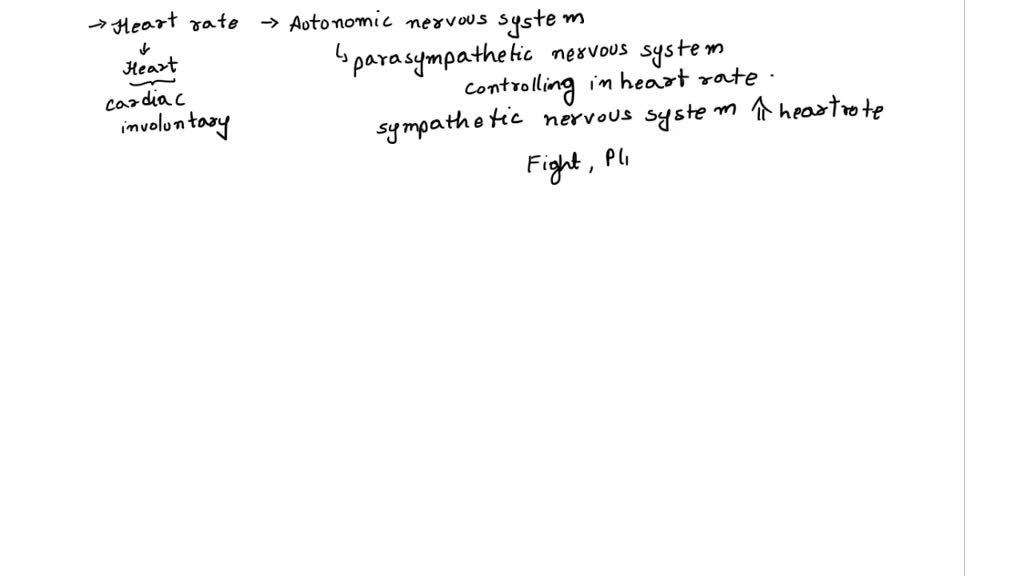 → Heart rate → Autonomic nervous system
↓
Heart
cardiac
involuntary
↳ parasympathetic nervous system
controlling in heart rate.
sympathetic nervous system ⇑ heartrate
Fight, Pl